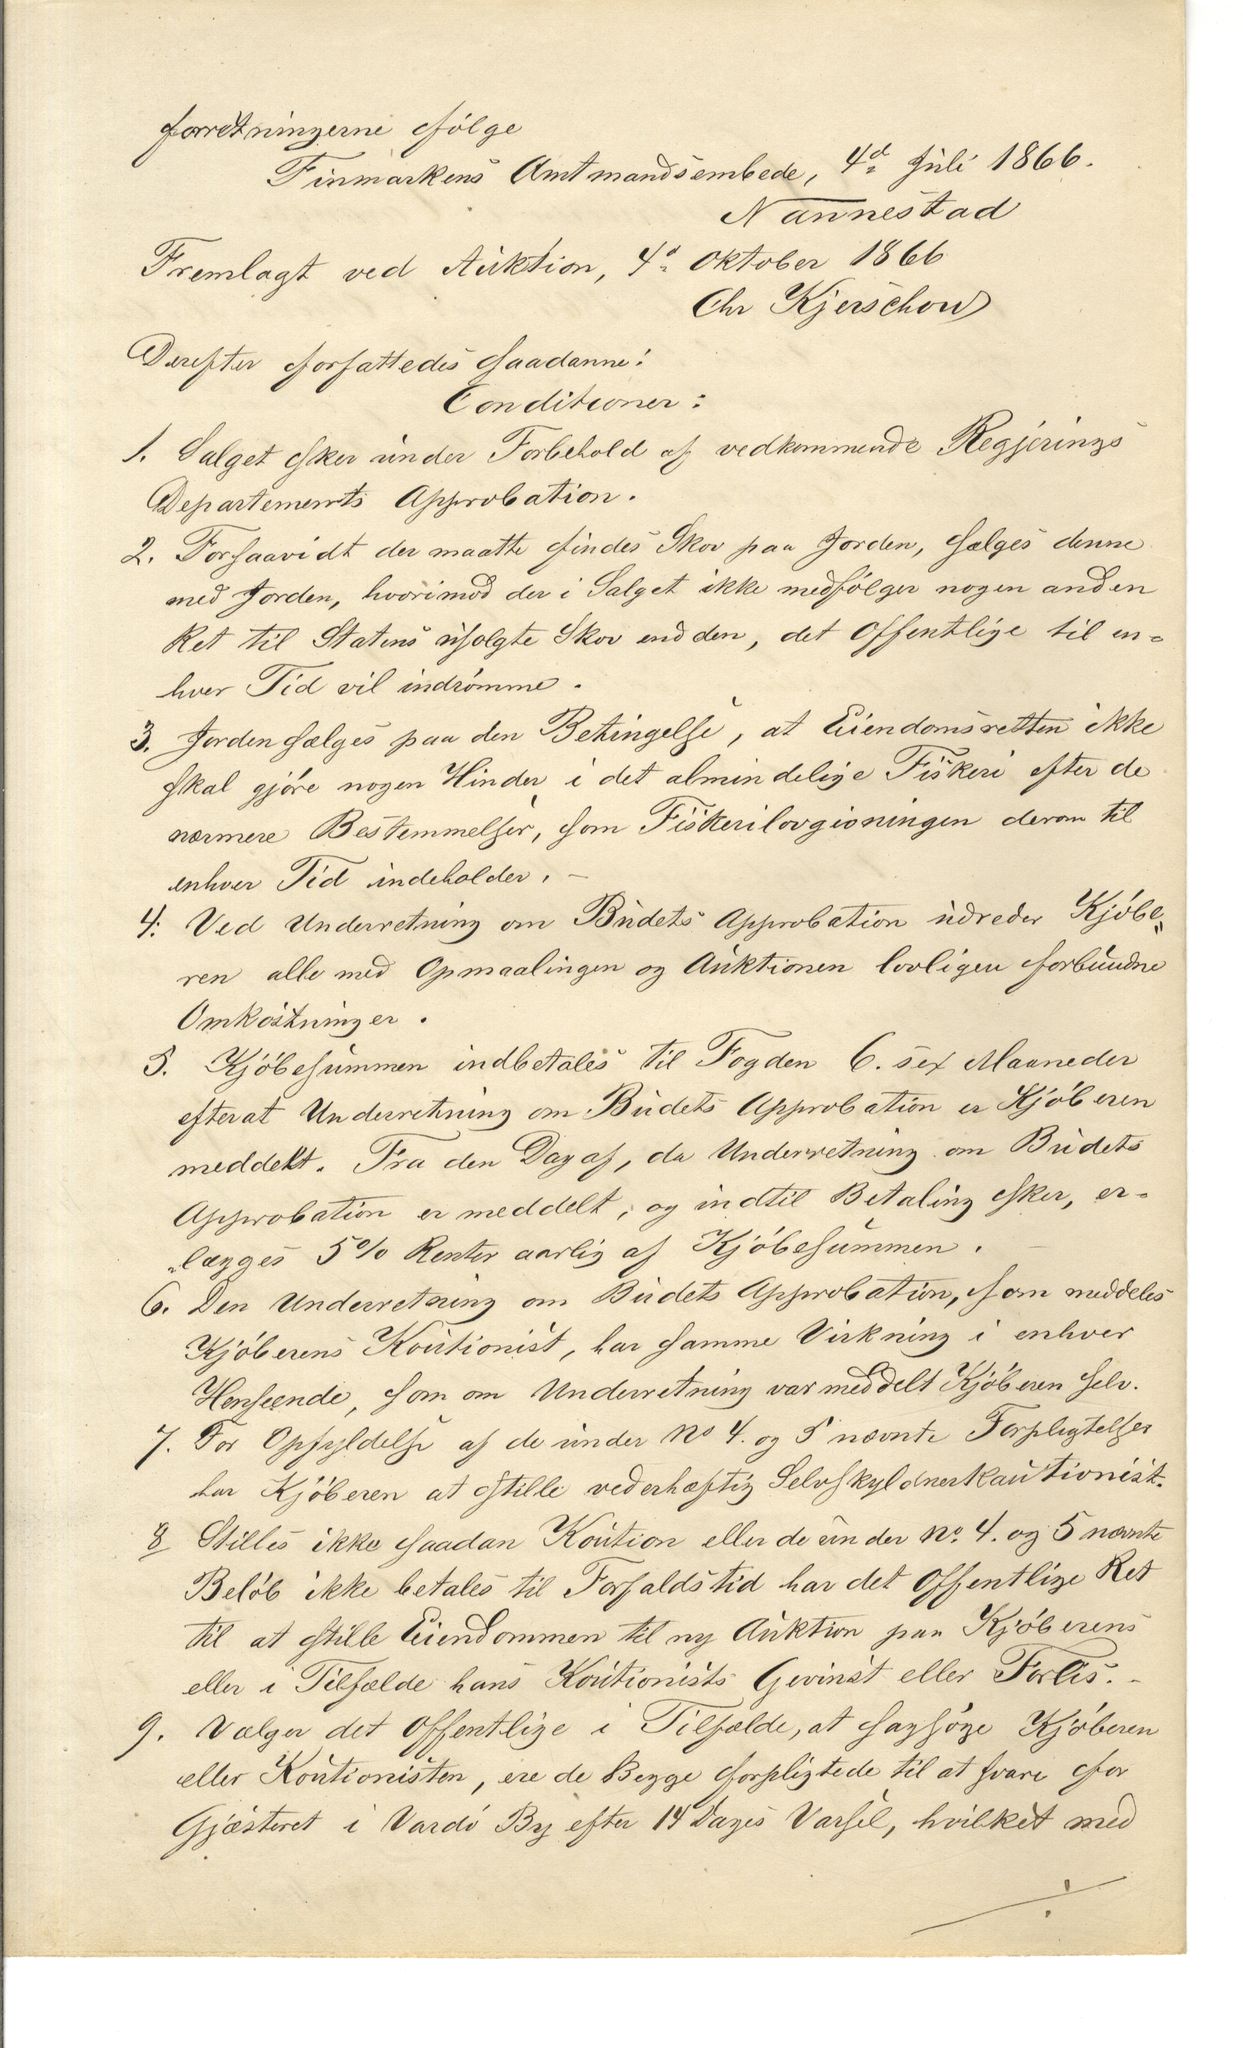 forretningerne følge
Finmarkens Amtmandsembede, 4d Juli 1866.
Nannestad
Fremlagt ved Auktion, 4d Oktober 1866
Chr Kjerschow
Derefter forfattedes saadanne:
Conditioner:
1. Salget sker under Forbehold af vedkommende Regjerings
Departements Approbation.
2. Forsaavidt der maatte findes Skov paa Jorden, sælges denne
med Jorden, hvorimod der i Salget ikke medfølger nogen anden
Ret til Statens usolgte Skov end den, det Offentlige til en=
hver Tid vil indrømme.
3. Jorden sælges paa den Betingelse, at Eiendomsretten ikke
skal gjøre nogen Hinder i det almindelige Fiskeri efter de
nærmere Bestemmelser, som Fiskerilovgivningen derom til
enhver Tid indeholder. —
4: Ved Underretning om Budets Approbation udreder Kjøbe„
ren alle med Opmaalingen og Auktionen lovligen forbundne
Omkostninger.
5. Kjøbesummen indbetales til Fogden 6. sex Maaneder
efterat Underretning om Budets Approbation er Kjøberen
meddelt. Fra den Dag af, da Underretning om Budets
Approbation er meddelt, og indtil Betaling sker, er=
„lægges 5% Renter aarlig af Kjøbesummen. —
6. Den Underretning om Budets Approbation, som meddeles
Kjøberens Kautionist, har samme Virkning i enhver
Henseende, som om Underretning var meddelt Kjøberen selv.
7. For Opfyldelse af de under No 4. og 5 nævnte Forpligtelser
har Kjøberen at stille vederhæftig Selvskyldnerkautionist.
8 Stilles ikke saadan Kaution eller de under No. 4. og 5 nævnte
Beløb ikke betales til Forfaldstid har det Offentlige Ret
til at stille Eiendommen til ny Auktion paa Kjøberens
eller i Tilfælde hans Kautionists Gevinst eller Forlis. -
9. Vælger det Offentlige i Tilfælde, at sagsøge Kjøberen
eller Kautionisten, ere de Begge forpligtede til at svare for
Gjæsteret i Vardø By efter 14 Dages Varsel, hvilket med